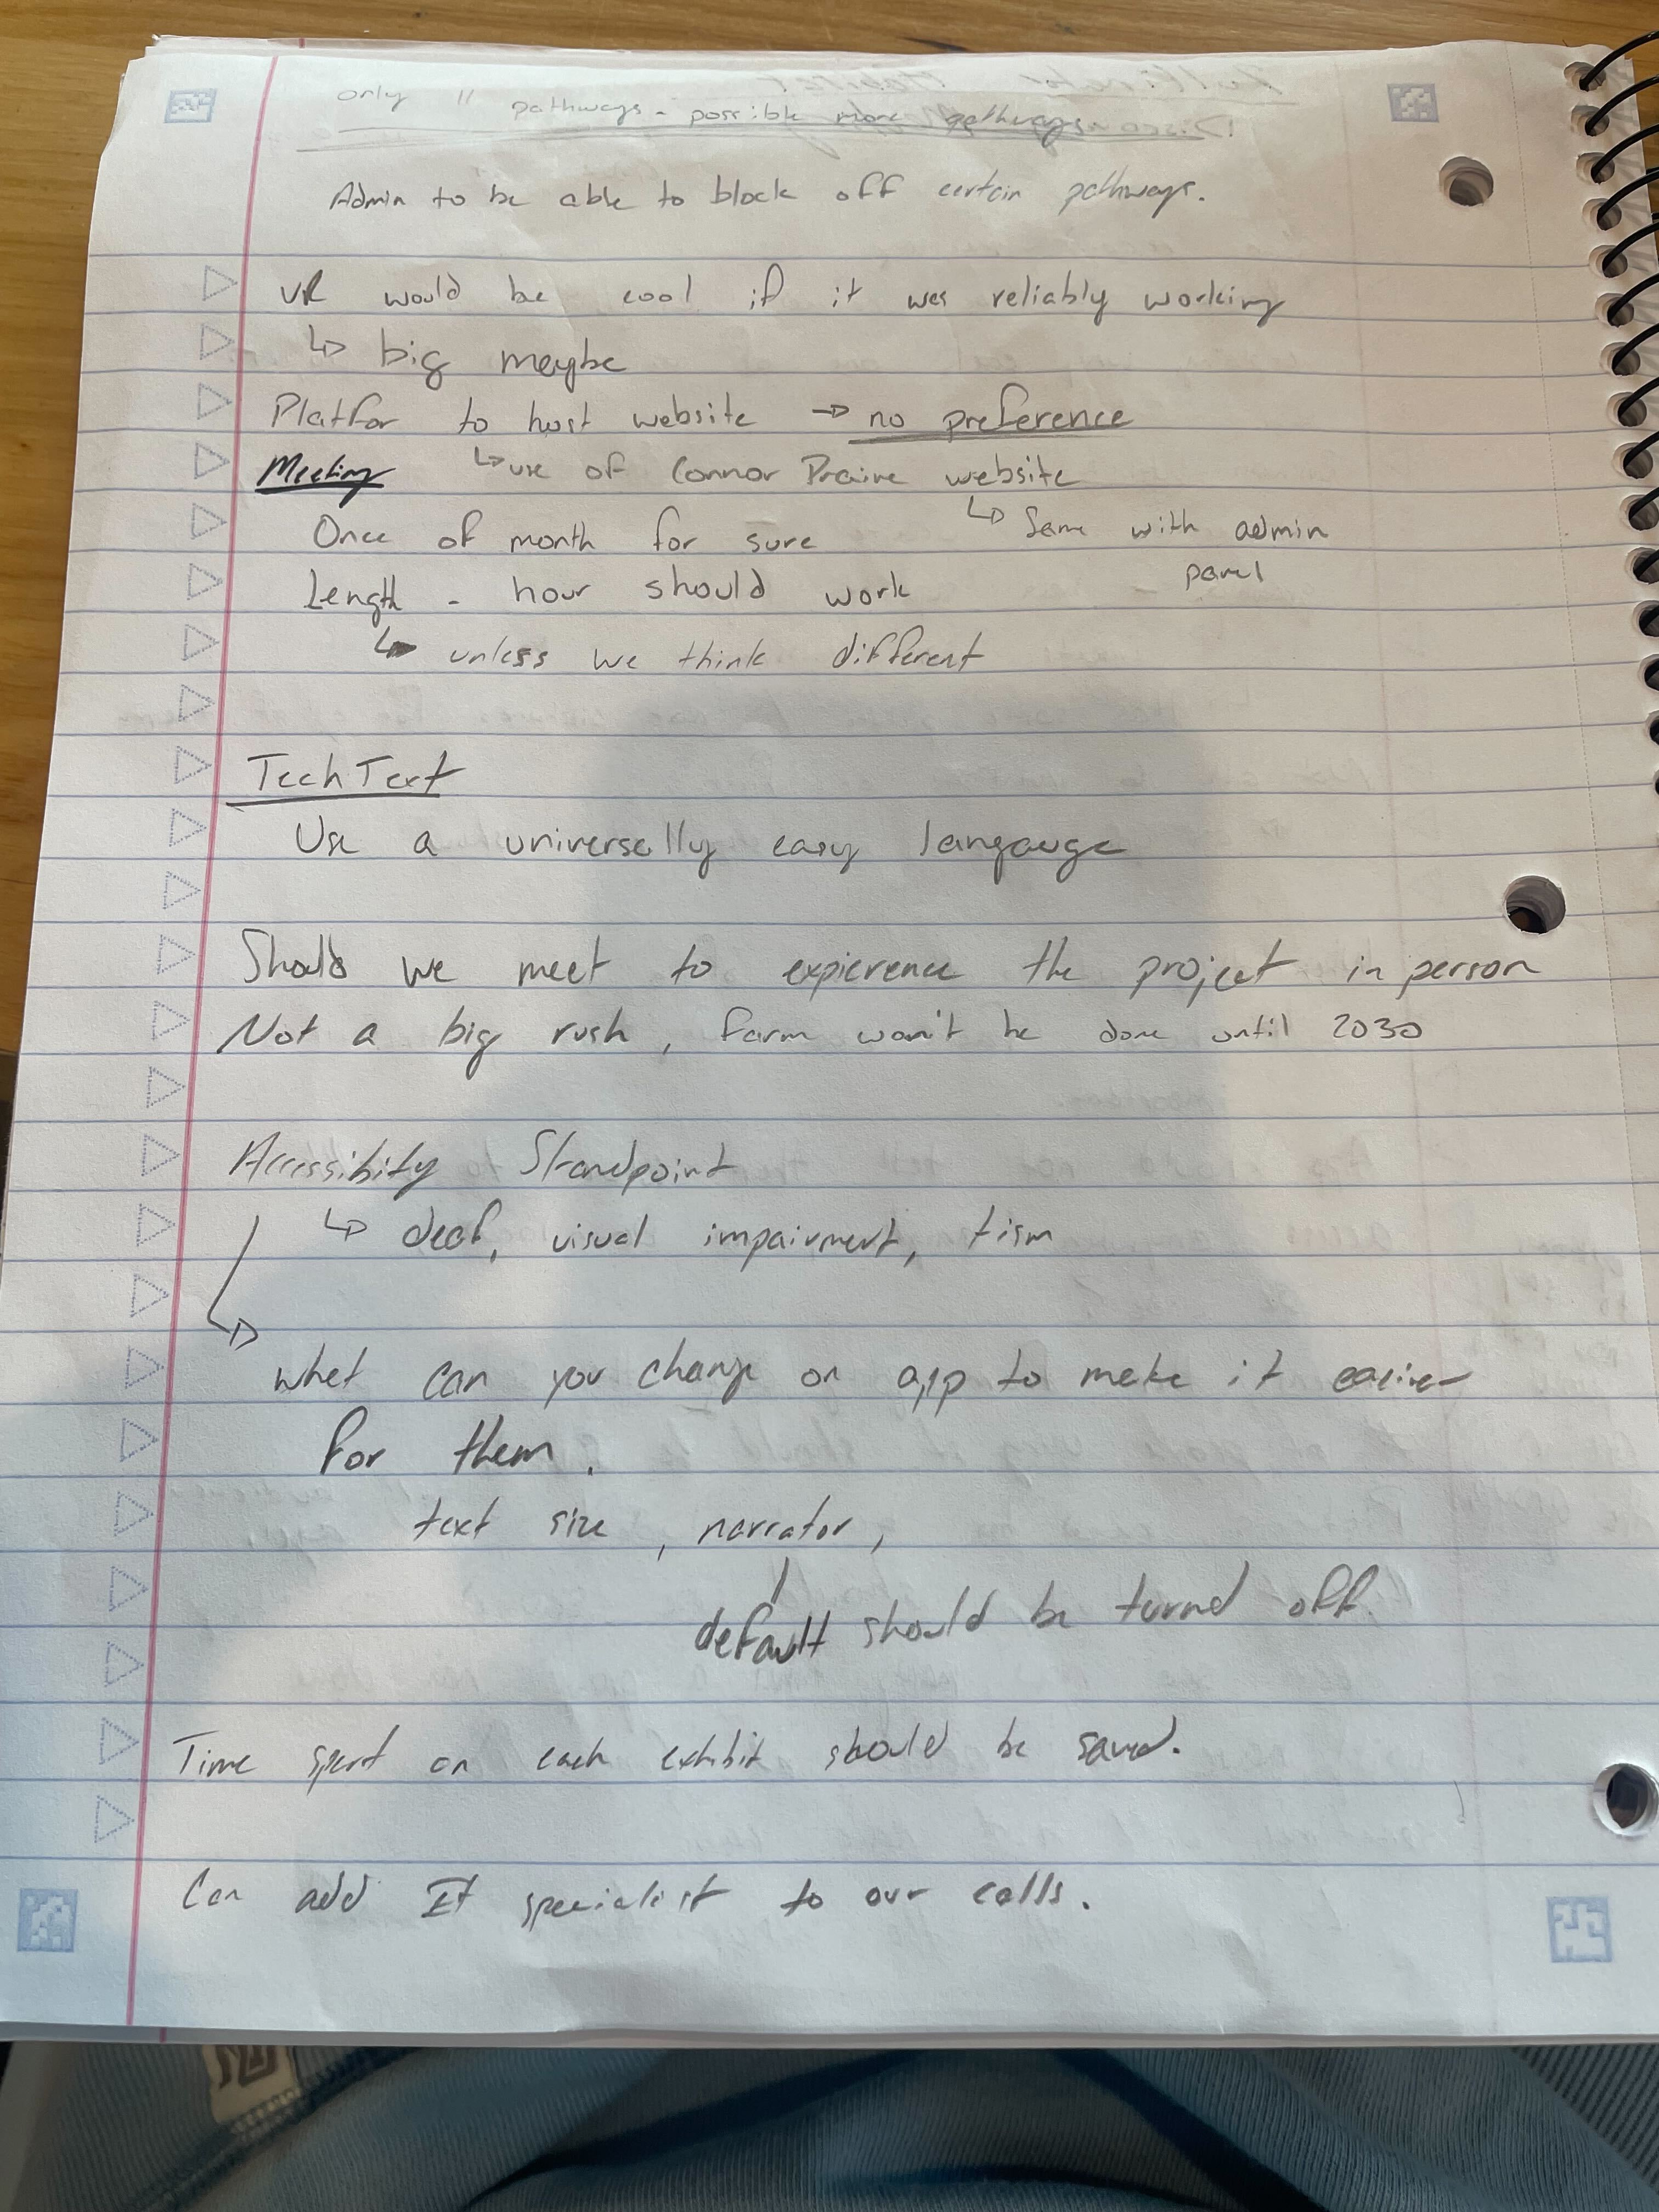 only 11 pathways - possible more pathways
Admin to be able to block off certain pathways.
VR would be cool if it was reliably working
↳ big maybe
Platfor to host website → no preference
Meeting ↳ use of Connor Praire website
Once of month for sure ↳ Same with admin
panel
Length - hour should work
↳ unless we think different
Tech Text
Use a universally easy langauge
Should we meet to expierence the project in person
Not a big rush, farm won't be done until 2030
Accessibity Standpoint
↳ deaf, visual impairment, tism
what can you change on app to make it easier
for them.
text size, narrator,
default should be turned off.
Time spent on each exhibit should be saved.
Can add It specialist to our calls.